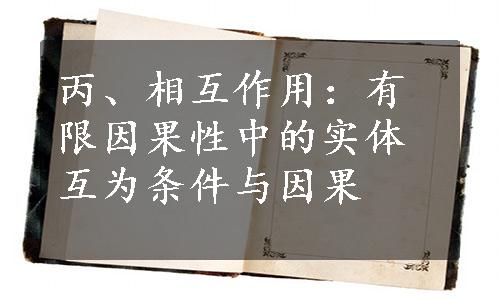 丙、相互作用：有
限因果性中的实体
互为条件与因果